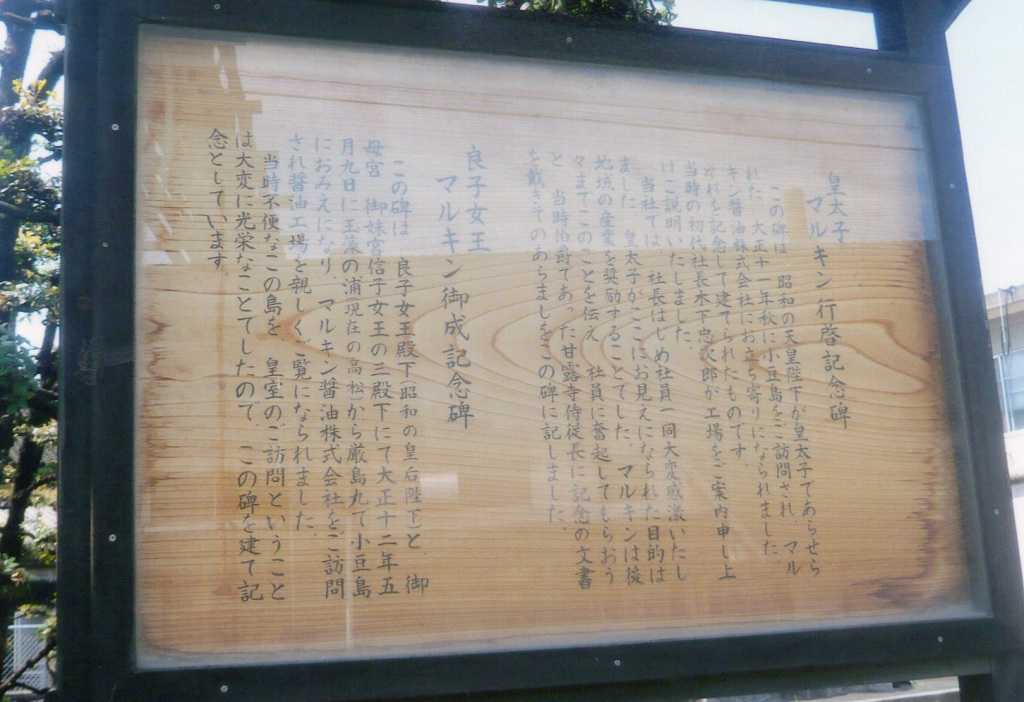 皇太子
マルキン行啓記念碑
この碑は 昭和の天皇陛下が皇太子であらせら
れた 大正十一年秋に小豆島をご訪問され マル
キン醤油株式会社にお立ち寄りになられました
それを記念して建てられたものです。
当時の初代社長木下忠次郎が工場をご案内申し上
げご説明いたしました
当社では 社長はじめ社員一同大変感激いたし
ました 皇太子がここにお見えになられた目的は
地域の産業を奨励することでした。マルキンは後
々までこのことを伝え 社員に奮起してもらおう
と 当時伯爵であった甘露寺侍従長に記念の文書
を戴きそのあらましをこの碑に記しました
良子女王
マルキン御成記念碑
この碑は 良子女王殿下(昭和の皇后陛下)と 御
母宮 御妹宮信子女王の三殿下にて大正十二年五
月九日に玉藻の浦(現在の高松から厳島丸で小豆島
におみえになり、マルキン醤油株式会社をご訪問
され醤油工場を親しくご覧になられました
当時不便なこの島を 皇室のご訪問ということ
は大変に光栄なことでしたので、この碑を建て記
念としています